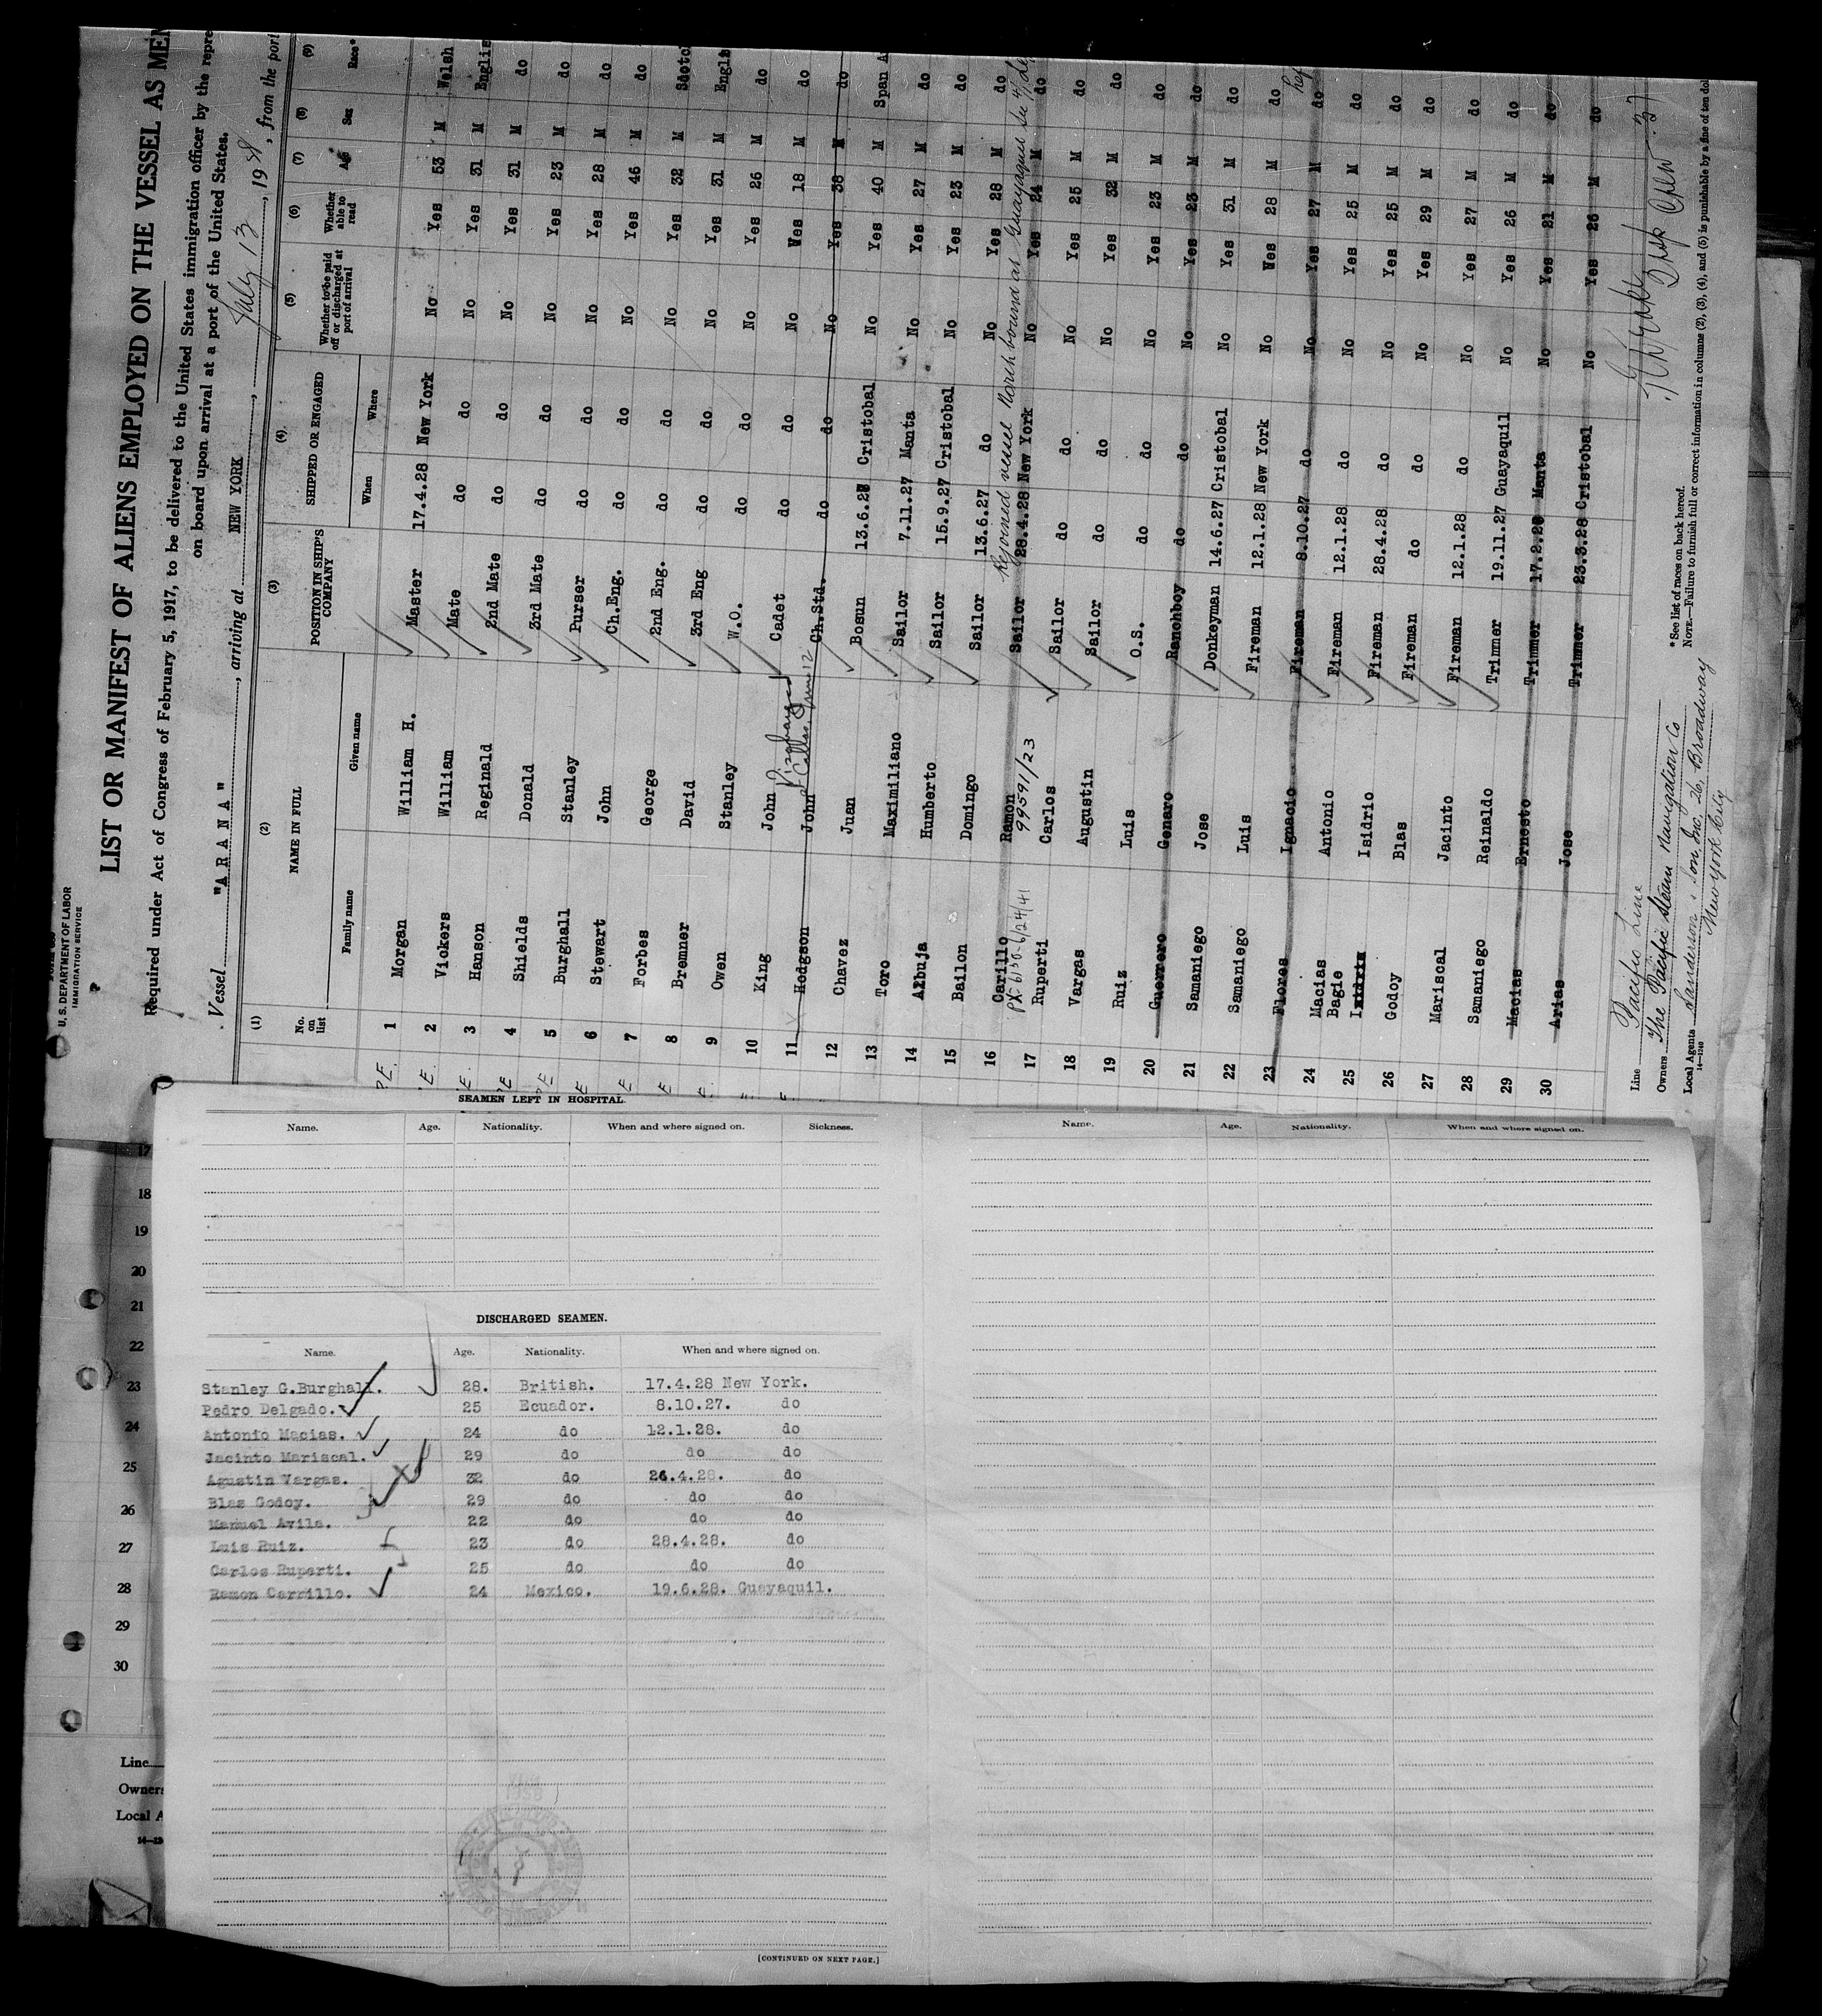 U. S. DEPARTMENT OF LABOR
IMMIGRATION SERVICE
LIST OR MANIFEST OF ALIENS EMPLOYED ON THE VESSEL AS MEM
Required under Act of Congress of February 5, 1917, to be delivered to the United States immigration officer by the repre
on board upon arrival at a port of the United States.
Vessel "ARANA", arriving at NEW YORK, July 13, 19, from the port
(1) (2) (3) (4) (5) (6) (7) (8) (9)
No. on list NAME IN FULL POSITION IN SHIP'S COMPANY SHIPPED OR ENGAGED Whether to be paid off or discharged at port of arrival Whether able to read Age Sex Race*
Family name Given name When Where
1 Morgan William H. Master 17.4.28 New York No Yes 53 M Welsh
2 Vickers William Mate do do No Yes 31 M Englis
3 Hanson Reginald 2nd Mate do do No Yes 31 M do
4 Shields Donald 3rd Mate do do No Yes 23 M do
5 Burghall Stanley Purser do do No Yes 28 M do
6 Stewart John Ch.Eng. do do No Yes 46 M do
7 Forbes George 2nd Eng. do do No Yes 32 M Scotc
8 Bremner David 3rd Eng do do No Yes 31 M Englis
9 Owen Stanley W.O. do do No Yes 26 M do
10 King John Cadet do do No Yes 18 M do
Discharged
at Callao, June 12
11 Hodgson John Ch.Std. do do No Yes 38 M do
12 Chavez Juan Bosun 13.6.27 Cristobal No Yes 40 M Span A
13 Toro Maximiliano Sailor 7.11.27 Manta No Yes 27 M do
14 Albuja Humberto Sailor 15.9.27 Cristobal No Yes 23 M do
15 Bailon Domingo Sailor 13.6.27 do No Yes 28 M do
Rejoined vessel North bound at Guayaquil
16 Carillo Ramon Sailor 28.4.28 New York No Yes 24 M do
99591/23
17 Ruperti Carlos Sailor do do No Yes 25 M do
18 Vargas Augustin Sailor do do No Yes 32 M do
19 Ruiz Luis O.S. do do No Yes 23 M do
20 Guerrero Genaro Ranchboy do do No Yes 23 M do
21 Samaniego Jose Donkeyman 14.6.27 Cristobal No Yes 31 M do
22 Samaniego Luis Fireman 12.1.28 New York No Yes 28 M do
23 Flores Ignacio Fireman 8.10.27 do No Yes 27 M do
24 Macias Antonio Fireman 12.1.28 do No Yes 25 M do
25 Bagie Isidrio Fireman 28.4.28 do No Yes 25 M do
26 Godoy Blas Fireman do do No Yes 29 M do
27 Mariscal Jacinto Fireman 12.1.28 do No Yes 27 M do
28 Samaniego Reinaldo Trimmer 19.11.27 Guayaquil No Yes 26 M do
29 Macias Ernesto Trimmer 17.2.28 Manta No Yes 21 M do
30 Arias Jose Trimmer 23.3.28 Cristobal No Yes 26 M do
Line Pacific Line
Owners The Pacific Steam Navigation Co
Local Agents Sanderson & Son, Inc, 26, Broadway
New York City
14—1240
* See list of races on back hereof.
NOTE.—Failure to furnish full or correct information in columns (2), (3), (4), and (5) is punishable by a fine of ten dol
SEAMEN LEFT IN HOSPITAL.
Name. Age. Nationality. When and where signed on. Sickness.
Name. Age. Nationality. When and where signed on.
DISCHARGED SEAMEN.
Name. Age. Nationality. When and where signed on.
Stanley G.Burghall. 28. British. 17.4.28 New York.
Pedro Delgado. 25 Ecuador. 8.10.27. do
Antonio Macias. 24 do 12.1.28. do
Jacinto Mariscal. 29 do do do
Agustin Vargas. 32 do 26.4.28. do
Blas Godoy. 29 do do do
Manuel Avila. 22 do do do
Luis Ruiz. 23 do 28.4.28. do
Carlos Ruperti. 25 do do do
Ramon Carrillo. 24 Mexico. 19.6.28. Guayaquil.
[CONTINUED ON NEXT PAGE.]
17
18
19
20
21
22
23
24
25
26
27
28
29
30
Line
Owners
Local A